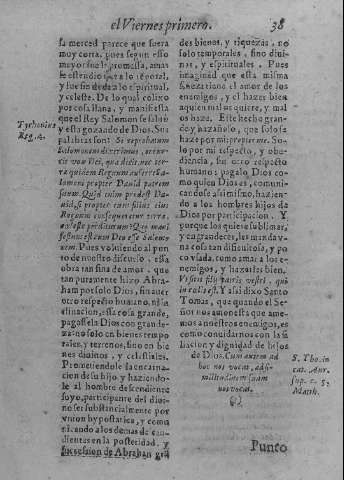 el Viernes primero. 38
sa merced parece que fuera
muy corta, pues segun esso
mayor fue la promessa, amas
se estendio que a lo tẽporal,
y fue sin duda a lo espiritual,
y celeste. De lo qual colijo
por cosa llana, y manifiesta
que el Rey Salomon se saluò
y esta gozando de Dios. Sus
palabras son: Si reprobatum
Salomonem dixerimus,
vox Dei, qua dicit, nec ter
ra quidem Regnum auferri Sa-
lomoni propter Dauid patrem
suum. Quid enim prodest Da-
uid, si propter eum filius eius
Regnum consequatur terræ,
cæleste perditurum? Quo mani
festum est eum Deo
Pues voluiendo al pun
to de nuestro discurso, essa
obra tan fina de amor, que
tan puramente hizo Abra-
ham por solo Dios, sin auer
otro respecto humano, ni in
clinacion, essa cosa grande,
pagosela Dios con grande-
za: no solo en bienes tempo
rales, y terrenos, sino en bie
nes diuinos, y celestiales.
Prometiendole la encarna-
cion de su hijo, y haziendo-
le al hombre descendiente
suyo, participante del diui-
no ser substancialmente por
vnion hypostatica, y comu
nicando a los demas de cen-
dientes en la posteridad, y
sucession de Abrahan grã
Tychonius
Reg. 4.
des bienes, y riquezas, no
solo temporales, sino diui-
nas, y espirituales. Pues
imaginad que esta misma
fineza tiene el amor de los
enemigos, y el hazer bien
a quien mal os quiere, y mal
os haze. Este hecho gran-
do y hazañoso, que solo se
haze por mi propter me. So-
lo por mi respeto, y obe-
diencia, sin otro respecto
humano; pagalo Dios co-
mo quien Dios es, comuni-
candose a si mismo, haziẽdo
a los hombres hijos de
Dios por participacion. Y
porque los quiere sublimar,
y engrandecer, les manda v-
na cosa tan dificultosa, y po
co vsada, como amar a los e-
nemigos, y hazerles bien.
Vt sitis filij patris vestri, qui
in cælis est. Y assi dixo Santo
Tomas, que quando el Se-
ñor nos amonesta que ame-
mos a nuestros enemigos, es
como conuidarnos con la fi
liacion y dignidad de hijos
de Dios. Cum autem ad
hoc nos vocat, ad si-
militudinem suam
nos vocat.
S. Tho. in
cat. Aur.
sup. c. 5.
Matth.
Punto